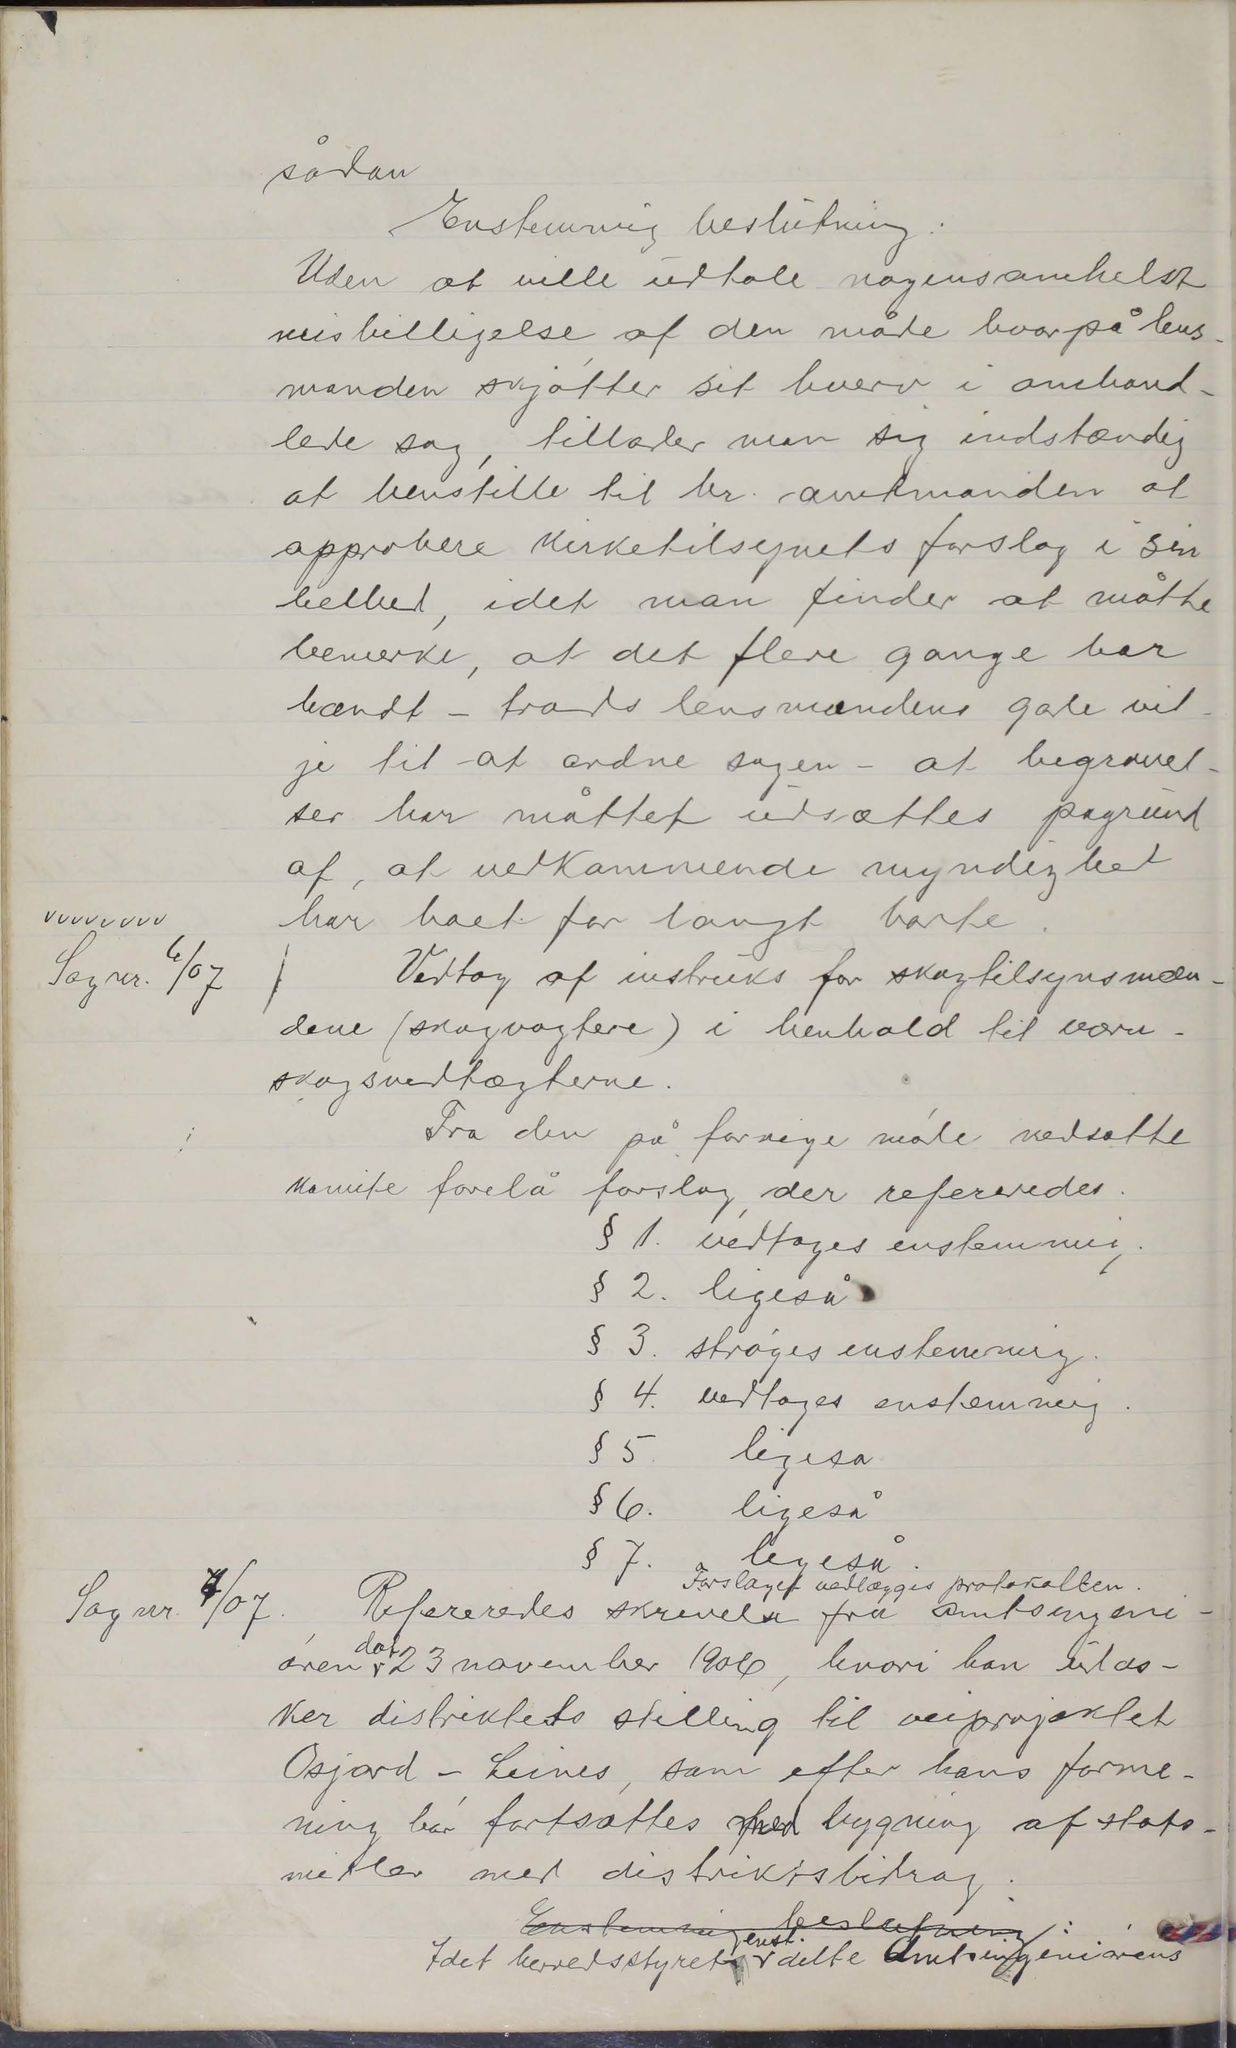 sådan
Enstemmig beslutning:
Uden at ville udtale nogensomhelst
misbilligelse af den måde hvorpå lens-
manden skjøtter sit hverv i omhand-
lede sag, tillader man sig indstændig
at henstille til hr. amtmanden at
approbere kirketilsynets forslag i sin
helhed, idet man finder at måtte
bemerke, at det flere gange har
hændt - trods lensmandens gode vil-
je til at ordne sagen - at begravel-
ser har måttet udsættes pågrund
af, at vedkommende myndighed
har boet for langt borte.
Sag nr. 6/07
Vedtag af instruks for skogtilsynsmæn-
dene (skogvogtere) i henhold til værn-
skogsvedtægterne.
Fra den på forrige møde nedsatte
komite forelå forslag, der refereredes.
§ 1. vedtages enstemmig.
§ 2. ligeså
§ 3. strøges enstemmig.
§ 4. vedtages enstemmig.
§ 5 ligesa
§ 6. ligeså
§ 7. ligeså.
Forslaget vedlægges protokollen.
Sag nr. 7/07.
Refereredes skrivelse fra amtsingeni-
øren dat 23 november 1906, hvori han udæs-
ker distriktets stilling til veiprojektet
Osjord - Leines, som efter hans forme-
ning bør fortsættes med bygning af stats-
midler med distriktsbidrag.
Enstemmig beslutning:
Idet herredsstyret enst. delte Amtsingeniørens